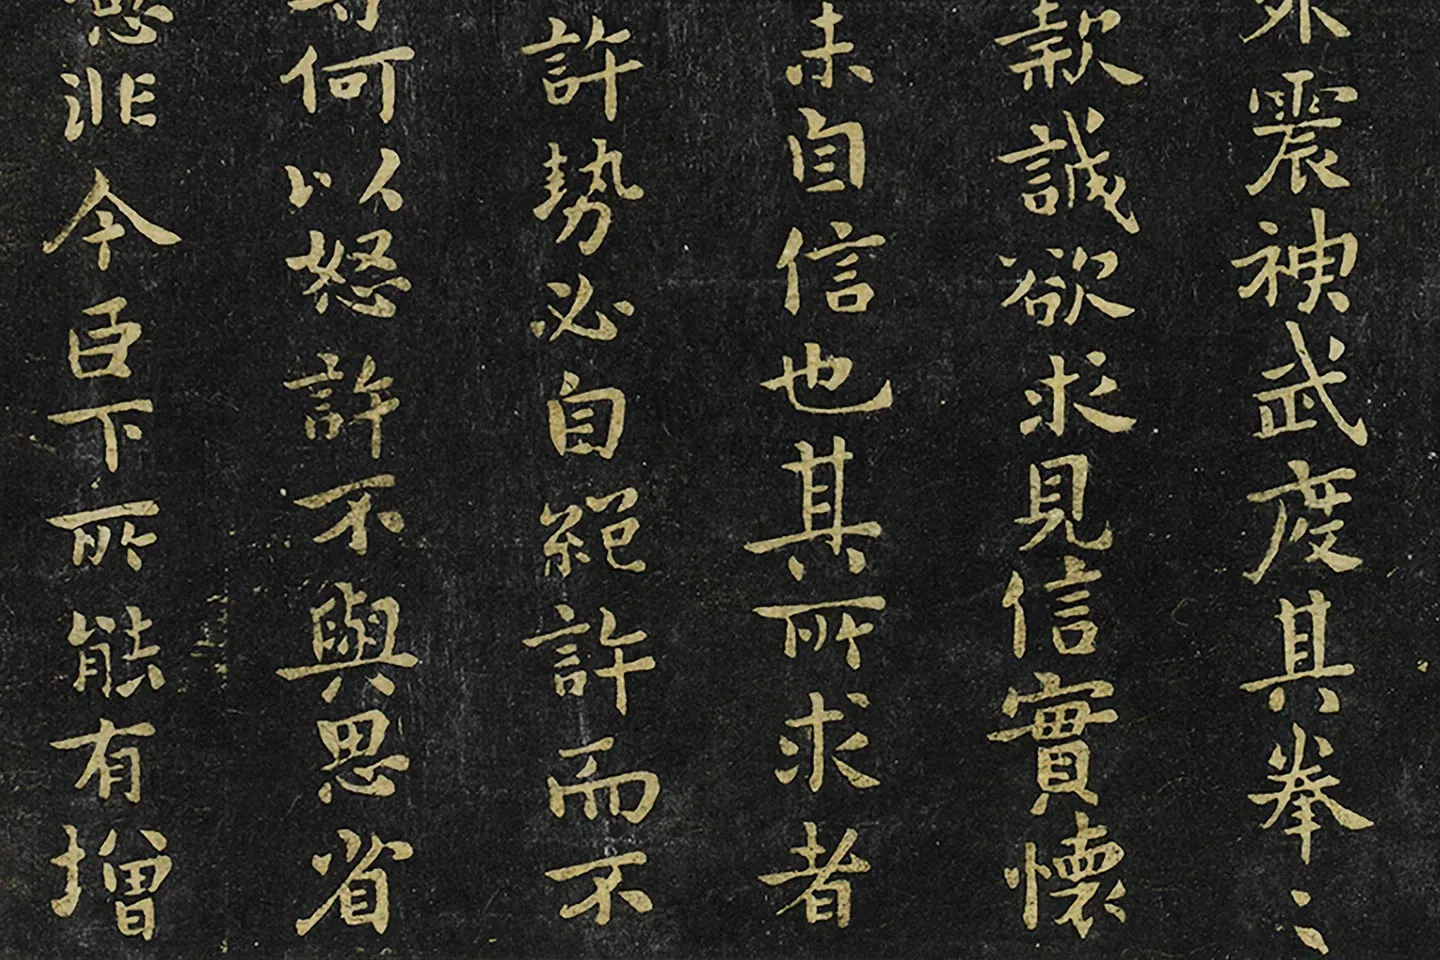 震神武度其拳〻
款誠欲求見信實懷
未自信也其所求者
許勢必自絕許而不
何以怒許不與思省
非今臣下所能有增